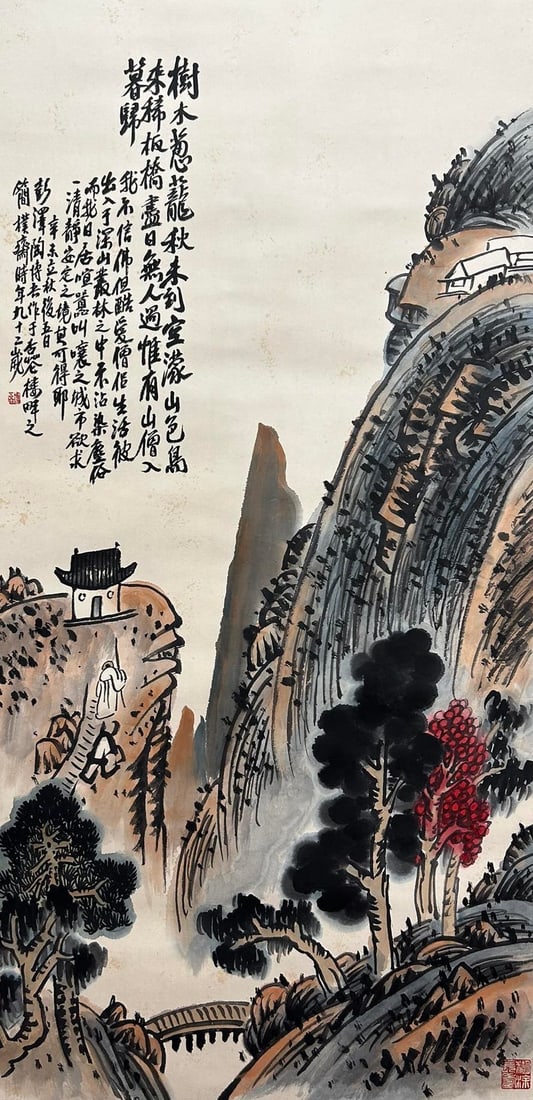 樹木蔥蘢秋未到空濛山色鳥
來稀板橋盡日無人過惟有山僧入
暮歸
我不信佛但酷愛僧侶生活彼
出入于深山叢林之中不沾染塵俗
而我日居喧囂叫嚷之城市欲求
一清靜安定之境其可得耶
辛未立秋後五日
彭澤陶博吾作于樓畔之
簡樸齋時年九十二歲